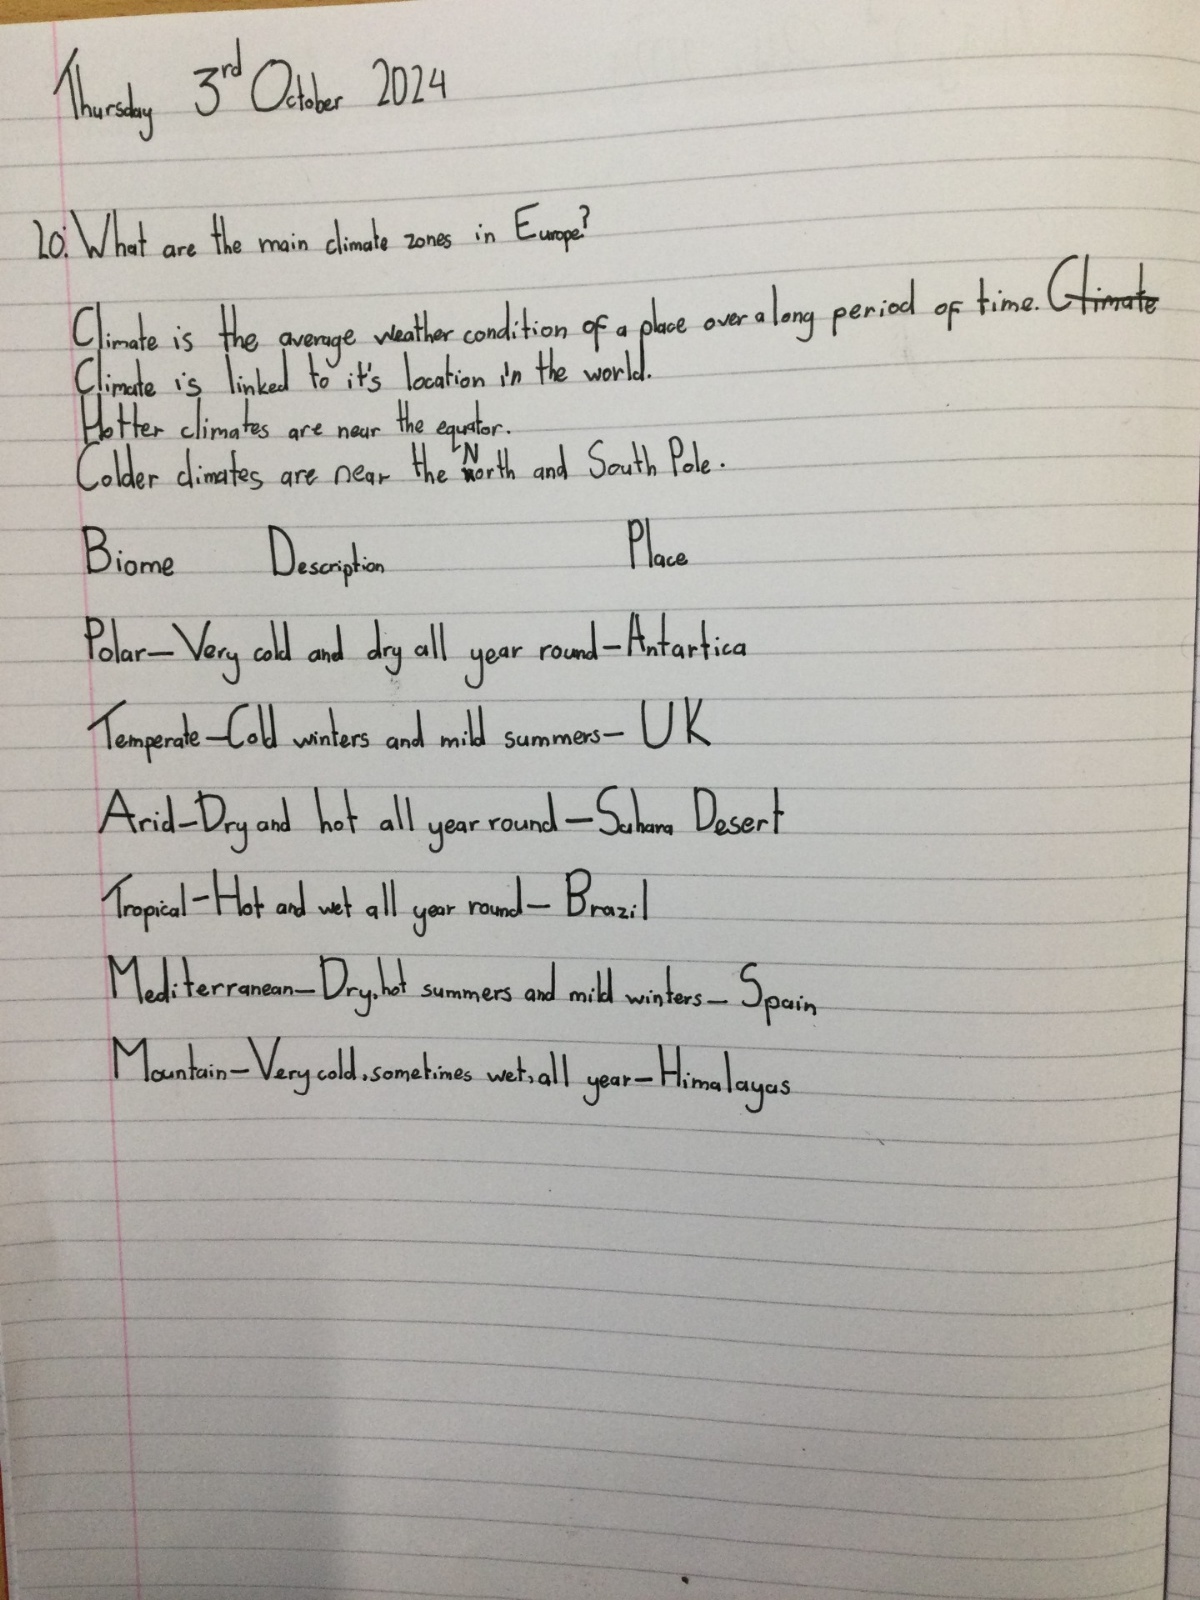 Thursday 3rd October 2024
LO: What are the main climate zones in Europe?
Climate is the average weather condition of a place over a long period of time. Climate
Climate is linked to it's location in the world.
Hotter climates are near the equator.
Colder climates are near the North and South Pole.
Biome Description Place
Polar—Very cold and dry all year round—Antartica
Temperate—Cold winters and mild summers—UK
Arid—Dry and hot all year round—Sahara Desert
Tropical—Hot and wet all year round—Brazil
Mediterranean—Dry, hot summers and mild winters—Spain
Mountain—Very cold, sometimes wet, all year—Himalayas